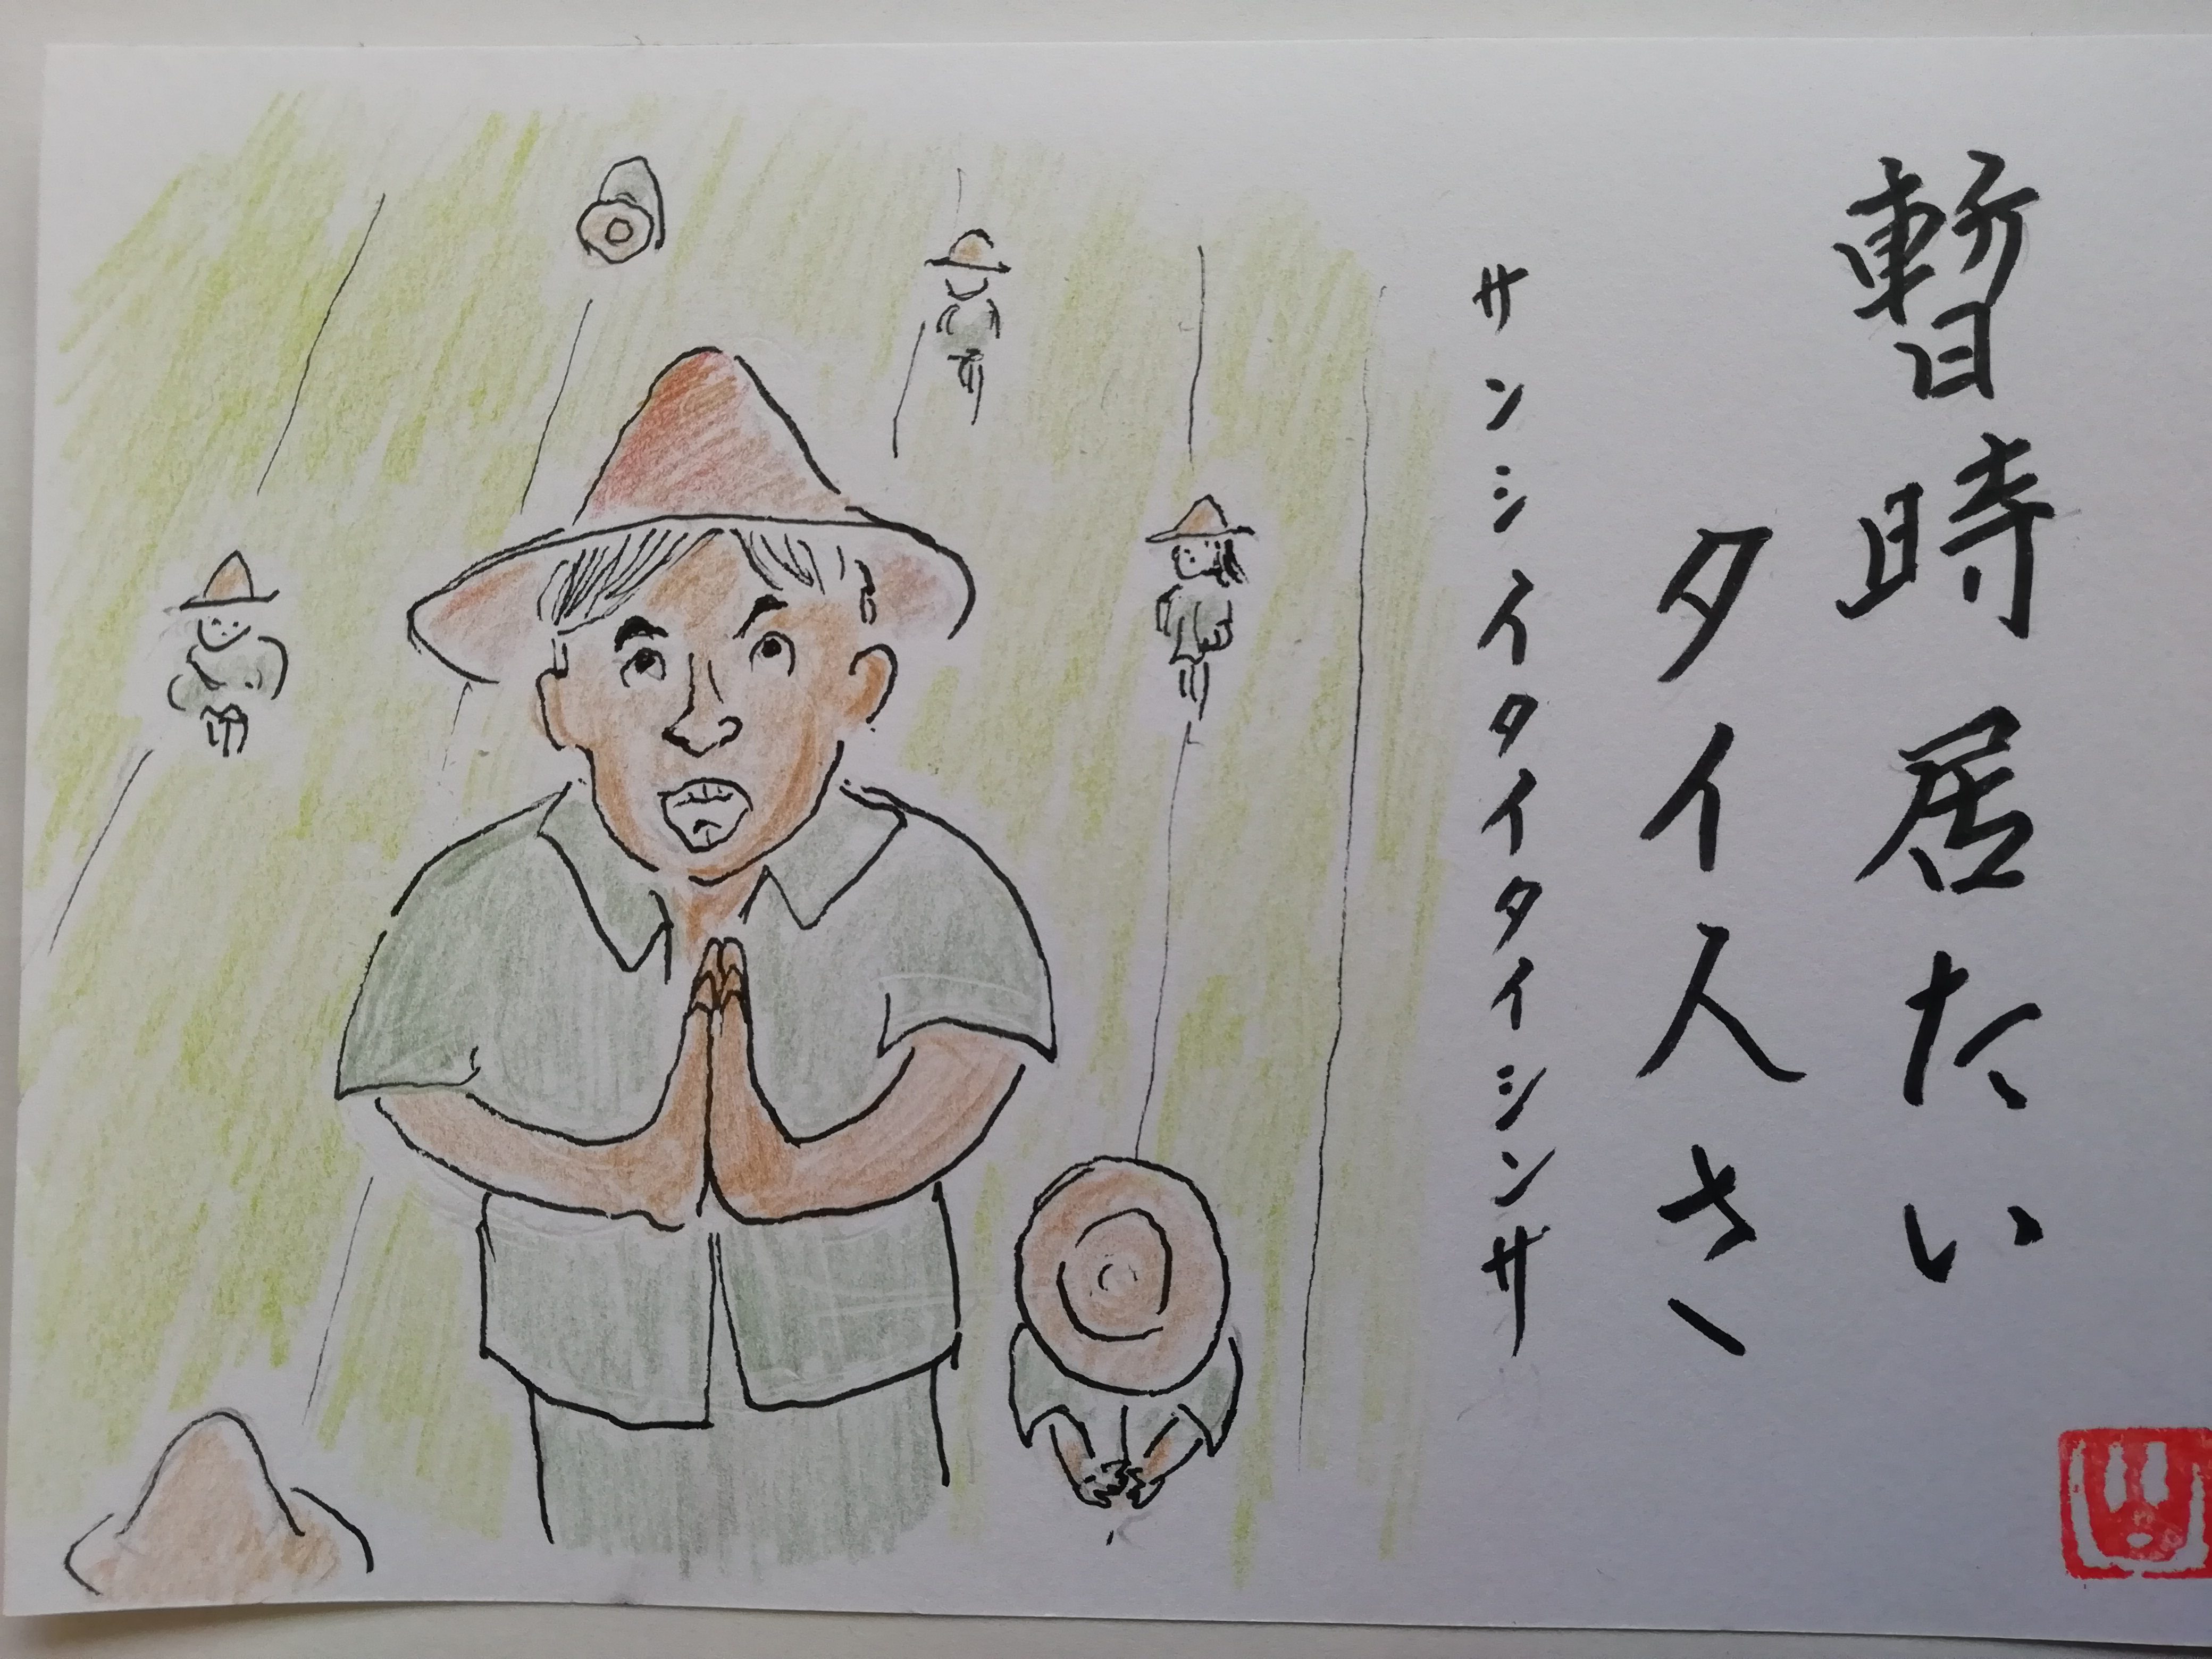 暫時居たい
タイ人さ
サンシイタイタイシンサ